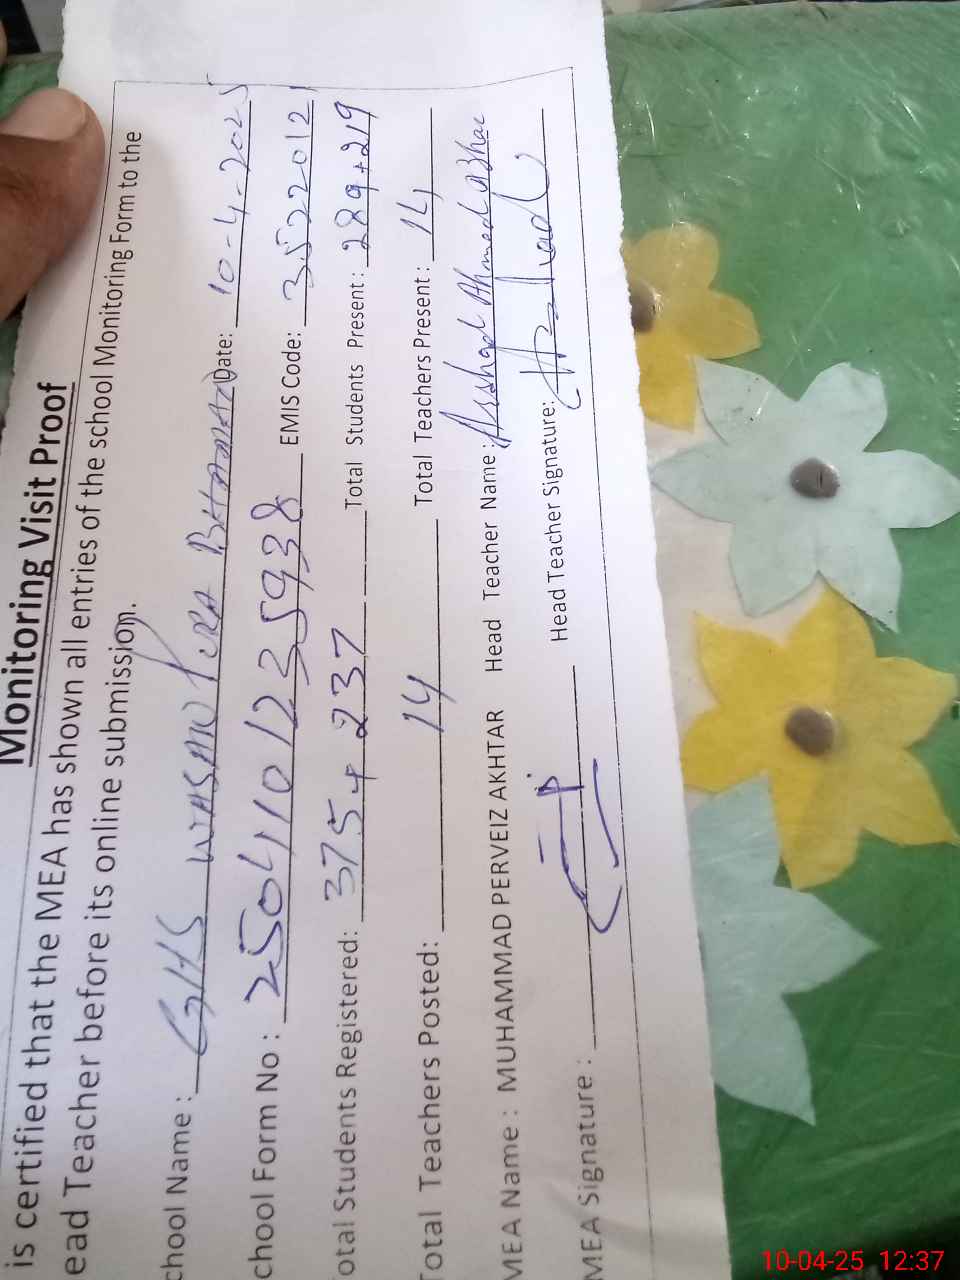 Monitoring Visit Proof
is certified that the MEA has shown all entries of the school Monitoring Form to the
ead Teacher before its online submission.
chool Name : GHS WASAND PURA Date: 10-4-2025
chool Form No : 2504110123 5938 EMIS Code: 35220121
otal Students Registered: 375 + 237 Total Students Present : 289+219
Total Teachers Posted: 14 Total Teachers Present : 14
MEA Name : MUHAMMAD PERVEIZ AKHTAR Head Teacher Name : Arshad Ahmed
MEA Signature : Head Teacher Signature:
10-04-25 12:37